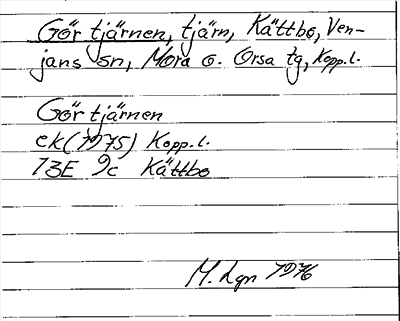 Gör tjärnen, tjärn, Kättbo, Ven-
jans sn, Mora o. Orsa tg, Kopp.l.
Gör tjärnen
ek(1975) Kopp.l.
13E 9c Kättbo
M. Lgn 1976